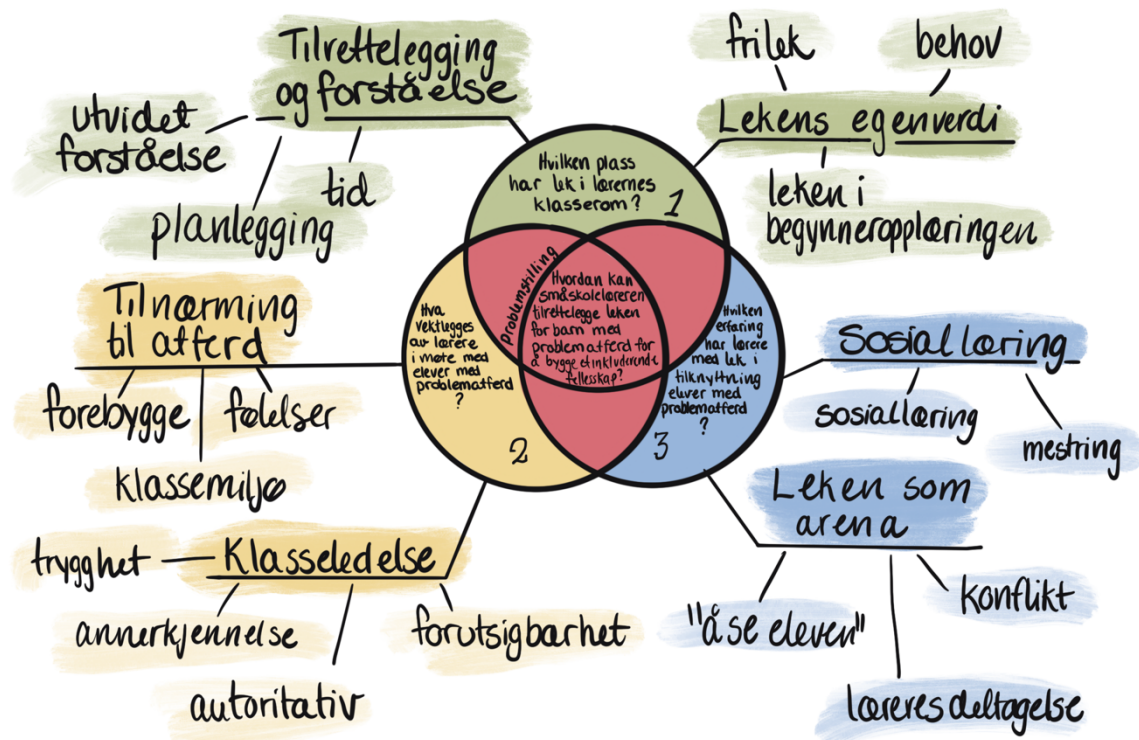 Tilrettelegging
og forståelse
utvidet
forståelse
planlegging
tid
frilek
behov
Lekens egenverdi
leken i
begynneropplæringen
Hvilken plass
har lek i lærernes
klasserom?
1
Problemstilling
Hvordan kan
småskolelæreren
tilrettelegge leken
for barn med
problematferd for
å bygge et inkluderende
fellesskap?
Hva
vektlegges
av lærere
i møte med
elever med
problematferd
?
2
Hvilken
erfaring
har lærere
med lek i
tilknyttning
elever med
problematferd
?
3
Tilnærming
til atferd
forebygge
følelser
klassemiljø
Klasseledelse
trygghet
annerkjennelse
autoritativ
forutsigbarhet
Sosial læring
sosial læring
mestring
Leken som
arena
"å se eleven"
konflikt
læreres deltagelse